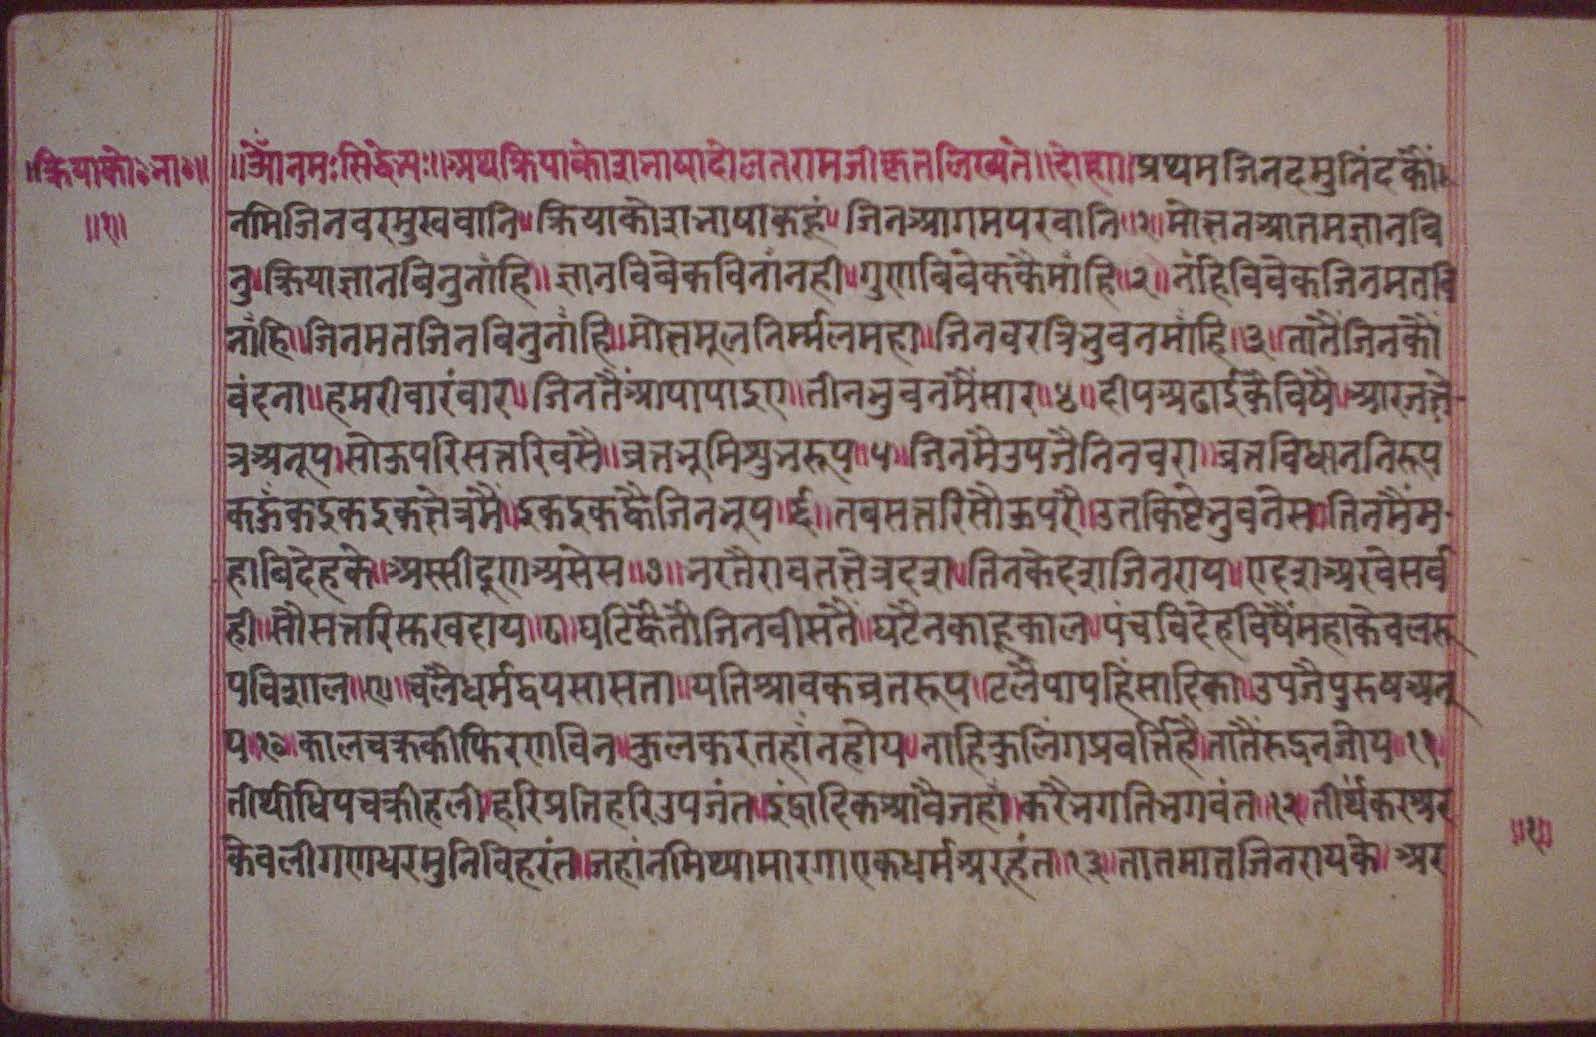 ॥क्रियाको॰भा॰॥
॥१॥
॥ओंनमःसिद्धेभ्यः॥अथक्रियाकोशभाषादौलतरामजीकृतलिख्यते॥दोहा॥प्रथमजिनंदमुनिंदकौं॥
नमिजिनवरमुखवानि॥क्रियाकोशभाषाकहूं॥जिनआगमपरवानि॥१॥मोक्षनआतमज्ञानबि
नु॥क्रियाज्ञानबिनुनांहि॥ज्ञानविवेकविनांनही॥गुणविवेककैमांहि॥२॥नंहिविवेकजिनमतवि
नांहि॥जिनमतजिनबिनुनांहि॥मोक्षमूलनिर्म्मलमहा॥जिनवरत्रिभुवनमांहि॥३॥तातैंजिनकौं
वंदना॥हमरीवारंवार॥जिनतैंआपापाइए॥तीनभुवनमैंसार॥४॥दीपअढाईकैविषै॥आरजक्षे-
त्रअनूप॥सोऊपरिसत्तरिवसै॥व्रतभूमिशुभरूप॥५॥जिनमैउपजैजिनवरा॥व्रतविधाननिरूप
कऊंकइकइकक्षेत्रमैं॥इकइकह्वैजिनभूप॥६॥तबसत्तरिसौऊपरै॥उतकिष्टेभुवनेस॥तिनमैंम-
हाविदेहके॥अस्सीदूणअसेस॥७॥भरतैरावतक्षेत्रदश॥तिनकेदशजिनराय॥एदशअरवेसर्व
ही॥सौसत्तरिसुखदाय॥८॥घटिह्वैतौजिनवीसतैं॥घटैनकाहूकाल॥पंचविदेहविषैंमहाकेवलरू
पविशाल॥९॥चलैधर्मद्वयसासता॥यतिश्रावकव्रतरूप॥टलैपापहिंसादिका॥उपजैपुरुषअनू
प॥१०॥कालचक्रकीफिरणविन॥कुलकरतहांनहोय॥नाहिकुलिंगप्रवर्त्तिहै॥तातैंरुद्रनजोय॥११
तीर्थाधिपचक्रीहली॥हरिप्रतिहरिउपजंत॥इंद्रादिकआवैजहां॥करैभगतिभगवंत॥१२॥तीर्थंकरअर
केवलीगणधरमुनिविहरंत॥जहांनमिथ्यामारगाएकधर्मअरहंत॥१३॥तातमातजिनरायके॥अर
॥१॥